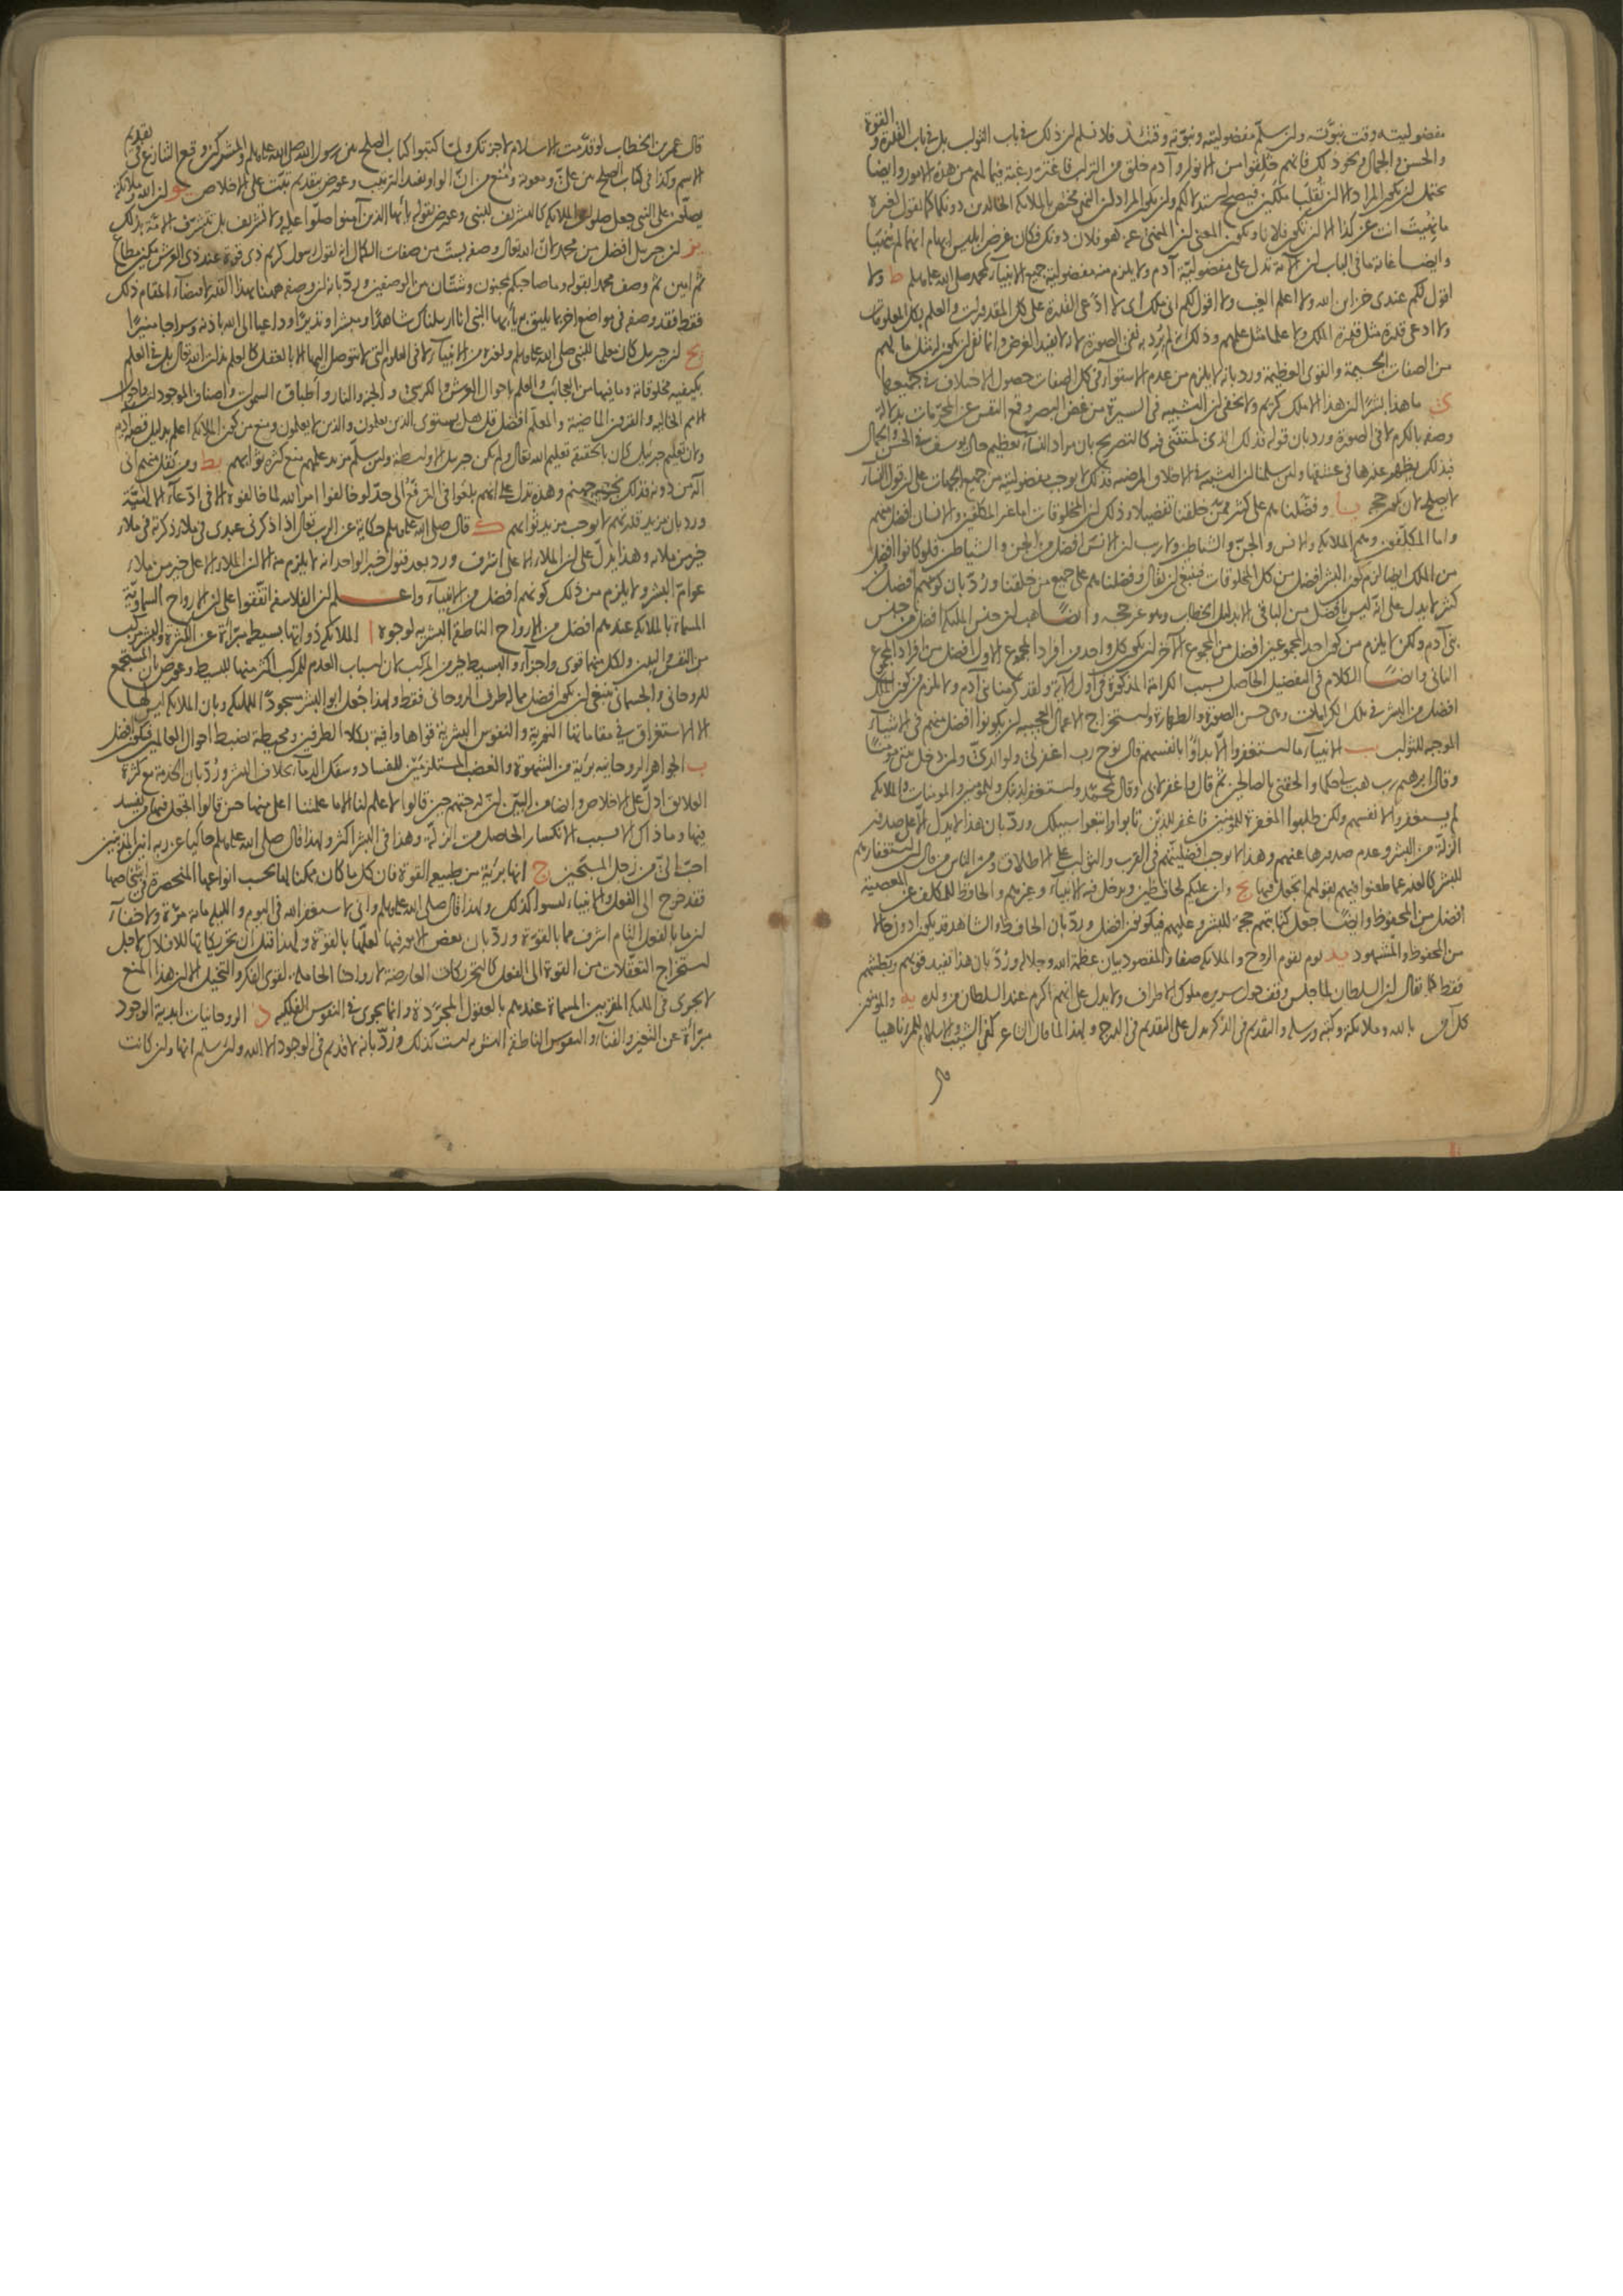 مفضوليته وقت نبوته ولئن سلم مفضوليته ونبوته وقتئذ فلا نسلم ان ذلك في باب الثواب بل في باب القدرة و القوة
والحسن والجمال ونحو ذلك فانهم خلقوا من الانوار وآدم خلق من التراب فاعترته رغبة فيما لهم من هذه الامور وايضا
يحتمل ان يكون المراد الا ان تقلبا ملكين فيصح استدلالكم وان يكون المراد ان النهي مختص بالملائكة الخالدين دونكما كما يقول لغيره
ما نهيت انت عن كذا الا ان تكون فلانا ويكون المعنى ان المنهي عنه هو فلان دونك فكان غرض ابليس ايهام انهما لم ينهيا
وايضا غاية ما في الباب ان الآية تدل على مفضولية آدم ولا يلزم منه مفضولية جميع الانبياء كمحمد صلى الله عليه وسلم ط ولا
اقول لكم عندي خزائن الله ولا اعلم الغيب ولا اقول لكم اني ملك اي لا ادعي القدرة على كل المقدورات والعلم بكل المعلومات
ولا ادعي قدرة مثل قدرة الملك ولا علما مثل علمهم وذلك لانه لم يرد به نفي الصورة لانه لا يفيد الغرض وانما نفى ان يكون له مثل ما لهم
من الصفات الجسيمة والقوى العظيمة ورد بانه لا يلزم من عدم الاستواء في كل الصفات حصول الاختلاف في جميعها
ى ما هذا بشرا ان هذا الا ملك كريم ولا يخفى ان التشبيه في السيرة من غض البصر وقمع النفس عن المحرمات بدلالة
وصفه بالكرم لا في الصورة ورد بان قوله فذلكن الذي لمتنني فيه كالتصريح بان مراد النساء تعظيم حال يوسف في الحسن والجمال
فبذلك يظهر عذرها في عشقها ولئن سلمنا ان التشبيه في الاخلاق المرضية فذلك لا يوجب مفضوليته من جميع الجهات على ان قول النساء
لا يصلح لان يكون حجة يا وفضلناهم على كثير ممن خلقنا تفضيلا وذلك ان المخلوقات اما غير المكلفين والانسان افضل منهم
واما المكلفون وهم الملائكة والانس والجن والشياطين ولا ريب ان الانس افضل من الجن والشياطين فلو كانوا افضل
من الملك ايضا لزم كون البشر افضل من كل المخلوقات فينبغي ان يقال وفضلناهم على جميع من خلقنا ورد بان كونهم افضل من
كثير لا يدل على انه ليس بافضل من الباقي الا بدليل الخطاب وهو غير حجة وايضا هب ان جنس الملائكة افضل من جنس
بني آدم ولكن لا يلزم من كون احد المجموعين افضل من المجموع الآخر ان يكون كل واحد من افراد المجموع الاول افضل من افراد المجموع
الثاني وايضا الكلام في التفضيل الحاصل بسبب الكرامة المذكورة في اول الآية ولقد كرمنا بني آدم ولا يلزم من كون الملك
افضل من البشر في تلك الكرامات وهي حسن الصورة والطهارة واستخراج الاعمال العجيبة ان يكونوا افضل منهم في الاشياء
الموجبة للثواب يب الانبياء ما استغفروا الا بداوا بانفسهم قال نوح رب اغفر لي ولوالدي ولمن دخل بيتي مؤمنا
وقال ابرهيم رب هب لي حكما والحقني بالصالحين ثم قال واغفر لابي وقال لمحمد واستغفر لذنبك وللمؤمنين والمؤمنات والملائكة
لم يستغفروا لانفسهم ولكن طلبوا المغفرة للمؤمنين فاغفر للذين تابوا واتبعوا سبيلك ورد بان هذا لا يدل الا على صدور
الزلة من البشر وعدم صدورها عنهم وهذا لا يوجب افضليتهم في القرب والثواب على الاطلاق ومن الناس من قال ان استغفارهم
للبشر كالعذر عما طعنوا فيهم بقولهم اتجعل فيها يج وان عليكم لحافظين ويدخل فيه الانبياء وغيرهم والحافظ للمكلف عن المعصية
افضل من المحفوظ وايضا جعل كتابتهم حجة للبشر وعليهم فيكونون افضل ورد بان الحافظ والشاهد قد يكون ادون حالا
من المحفوظ والمشهود يد يوم يقوم الروح والملائكة صفا والمقصود بيان عظمة الله وجلاله ورد بان هذا يفيد قوتهم وبطشهم
فقط كما يقال ان السلطان لما جلس وقف حول سريره ملوك الاطراف ولا يدل على انهم اكرم عند السلطان من ولده يه والمؤمنون
كل آمن بالله وملائكته وكتبه ورسله والتقديم في الذكر يدل على التقديم في الدرجة ولهذا لما قال الشاعر كفى الشيب والاسلام للمرء ناهيا
قال عمر بن الخطاب لو قدمت الاسلام لاجزتك ولما كتبوا كتاب الصلح بين رسول الله صلى الله عليه وسلم والمشركين وقع التنازع في تقديم
الاسم وكذا في كتاب الصلح بين علي ومعوية ومنع من ان الواو يفيد الترتيب وعورض بتقديم تبت على الاخلاص يو ان الله وملائكته
يصلون على النبي جعل صلوات الملائكة كالتشريف للنبي وعورض بقوله يا ايها الذين آمنوا صلوا عليه ولا تشريف بل تتشرف الامة بذلك
يز ان جبريل افضل من محمد لان الله تعالى وصفه بست من صفات الكمال انه لقول رسول كريم ذي قوة عند ذي العرش مكين مطاع
ثم امين ثم وصف محمدا بقوله وما صاحبكم بمجنون وشتان من الوصفين ورد بانه ان وصفه ههنا بهذا القدر لاقتضاء المقام ذلك
فقط فقد وصفه في مواضع اخر بما يليق به يا ايها النبي انا ارسلناك شاهدا ومبشرا ونذيرا وداعيا الى الله باذنه وسراجا منيرا
يح ان جبريل كان معلما للنبي صلى الله عليه وسلم ولغيره من الانبياء لا في العلوم التي لا يتوصل اليها الا بالعقل كالعلم بذات الله تعالى بل في العلم
بكيفية مخلوقاته وما فيها من العجائب والعلم باحوال العرش والكرسي والجنة والنار واطباق السموات واصناف الموجودات واحوال
الامم الخالية والقرون الماضية والمعلم افضل قل هل يستوي الذين يعلمون والذين لا يعلمون ومنع من كون الملائكة اعلم بدليل قصة آدم
ولان تعليم جبريل كان بالحقيقة تعليم الله تعالى ولم يكن جبريل الا واسطة ولئن سلم مزيد علمهم منع كثرة ثوابهم يط ومن يقل منهم اني
اله من دونه فذلك نجزيه جهنم وهذه تدل على انهم بلغوا في الترفع الى حد لو خالفوا امر الله لما خالفوه الا في ادعاء الالهية
ورد بان مزيد قدرتهم لا يوجب مزيد ثوابهم ك قال صلى الله عليه وسلم حكاية عن الرب تعالى اذا ذكرني عبدي في ملاء ذكرته في ملاء
خير من ملائه وهذا يدل على ان الملاء الاعلى اشرف ورد بعد قبول خبر الواحد انه لا يلزم منه الا ان الملاء الاعلى خير من ملاء
عوام البشر ولا يلزم من ذلك كونهم افضل من الانبياء واعلم ان الفلاسفة اتفقوا على ان الارواح السماوية
المسماة بالملائكة عندهم افضل من الارواح الناطقة البشرية لوجوه ا الملائكة ذواتها بسيطة مبرأة عن الكثرة والبشر مركب
من النفس والبدن ولكل منهما قوى واجزاء والبسيط خير من المركب لان اسباب العدم للمركب اكثر منها للبسيط وعورض بان المستجمع
للروحاني والجسماني ينبغي ان يكون افضل مما له طرف الروحاني فقط ولهذا جعل ابو البشر مسجودا للملائكة وبان الملائكة ليس لها
الا الاستغراق في مقاماتها النورية والنفوس البشرية قواها وافية بكلا الطرفين ومحيطة بضبط احوال العالمين فيكون افضل
ب الجواهر الروحانية بريئة من الشهوة والغضب المستلزمين للفساد وسفك الدماء بخلاف البشر ورد بان الخدمة مع كثرة
العلائق ادل على الاخلاص وايضا من البين ان درجتهم حين قالوا لا علم لنا الا ما علمتنا اعلى منها حين قالوا اتجعل فيها من يفسد
فيها وما ذاك الا بسبب الانكسار الحاصل من الزلة وهذا في البشر اكثر ولهذا قال صلى الله عليه وسلم حاكيا عن ربه انين المذنبين
احب الي من زجل المسبحين ج انها بريئة من طبيعة القوة فان كل ما كان ممكنا لها بحسب انواعها المنحصرة في اشخاصها
فقد خرج الى الفعل والانبياء ليسوا كذلك ولهذا قال صلى الله عليه وسلم واني لاستغفر الله في اليوم والليلة مائة مرة ولا خفاء
ان ما بالفعل التام اشرف مما بالقوة ورد بان بعض الامور فيها لعلها بالقوة ولهذا قيل ان تحريكاتها للافلاك لاجل
استخراج التعقلات من القوة الى الفعل كالتحريكات العارضة لارواحنا الحاملة لقوى الفكر والتخيل الا ان هذا المنع
لا يجري في الملائكة المقربين المسماة عندهم بالعقول المجردة وانما يجري في النفوس الفلكية د الروحانيات ابدية الوجود
مبرأة عن التغير والفناء والنفوس الناطقة البشرية ليست كذلك ورد بانه لا قديم في الوجود الا الله ولئن سلم انها وان كانت